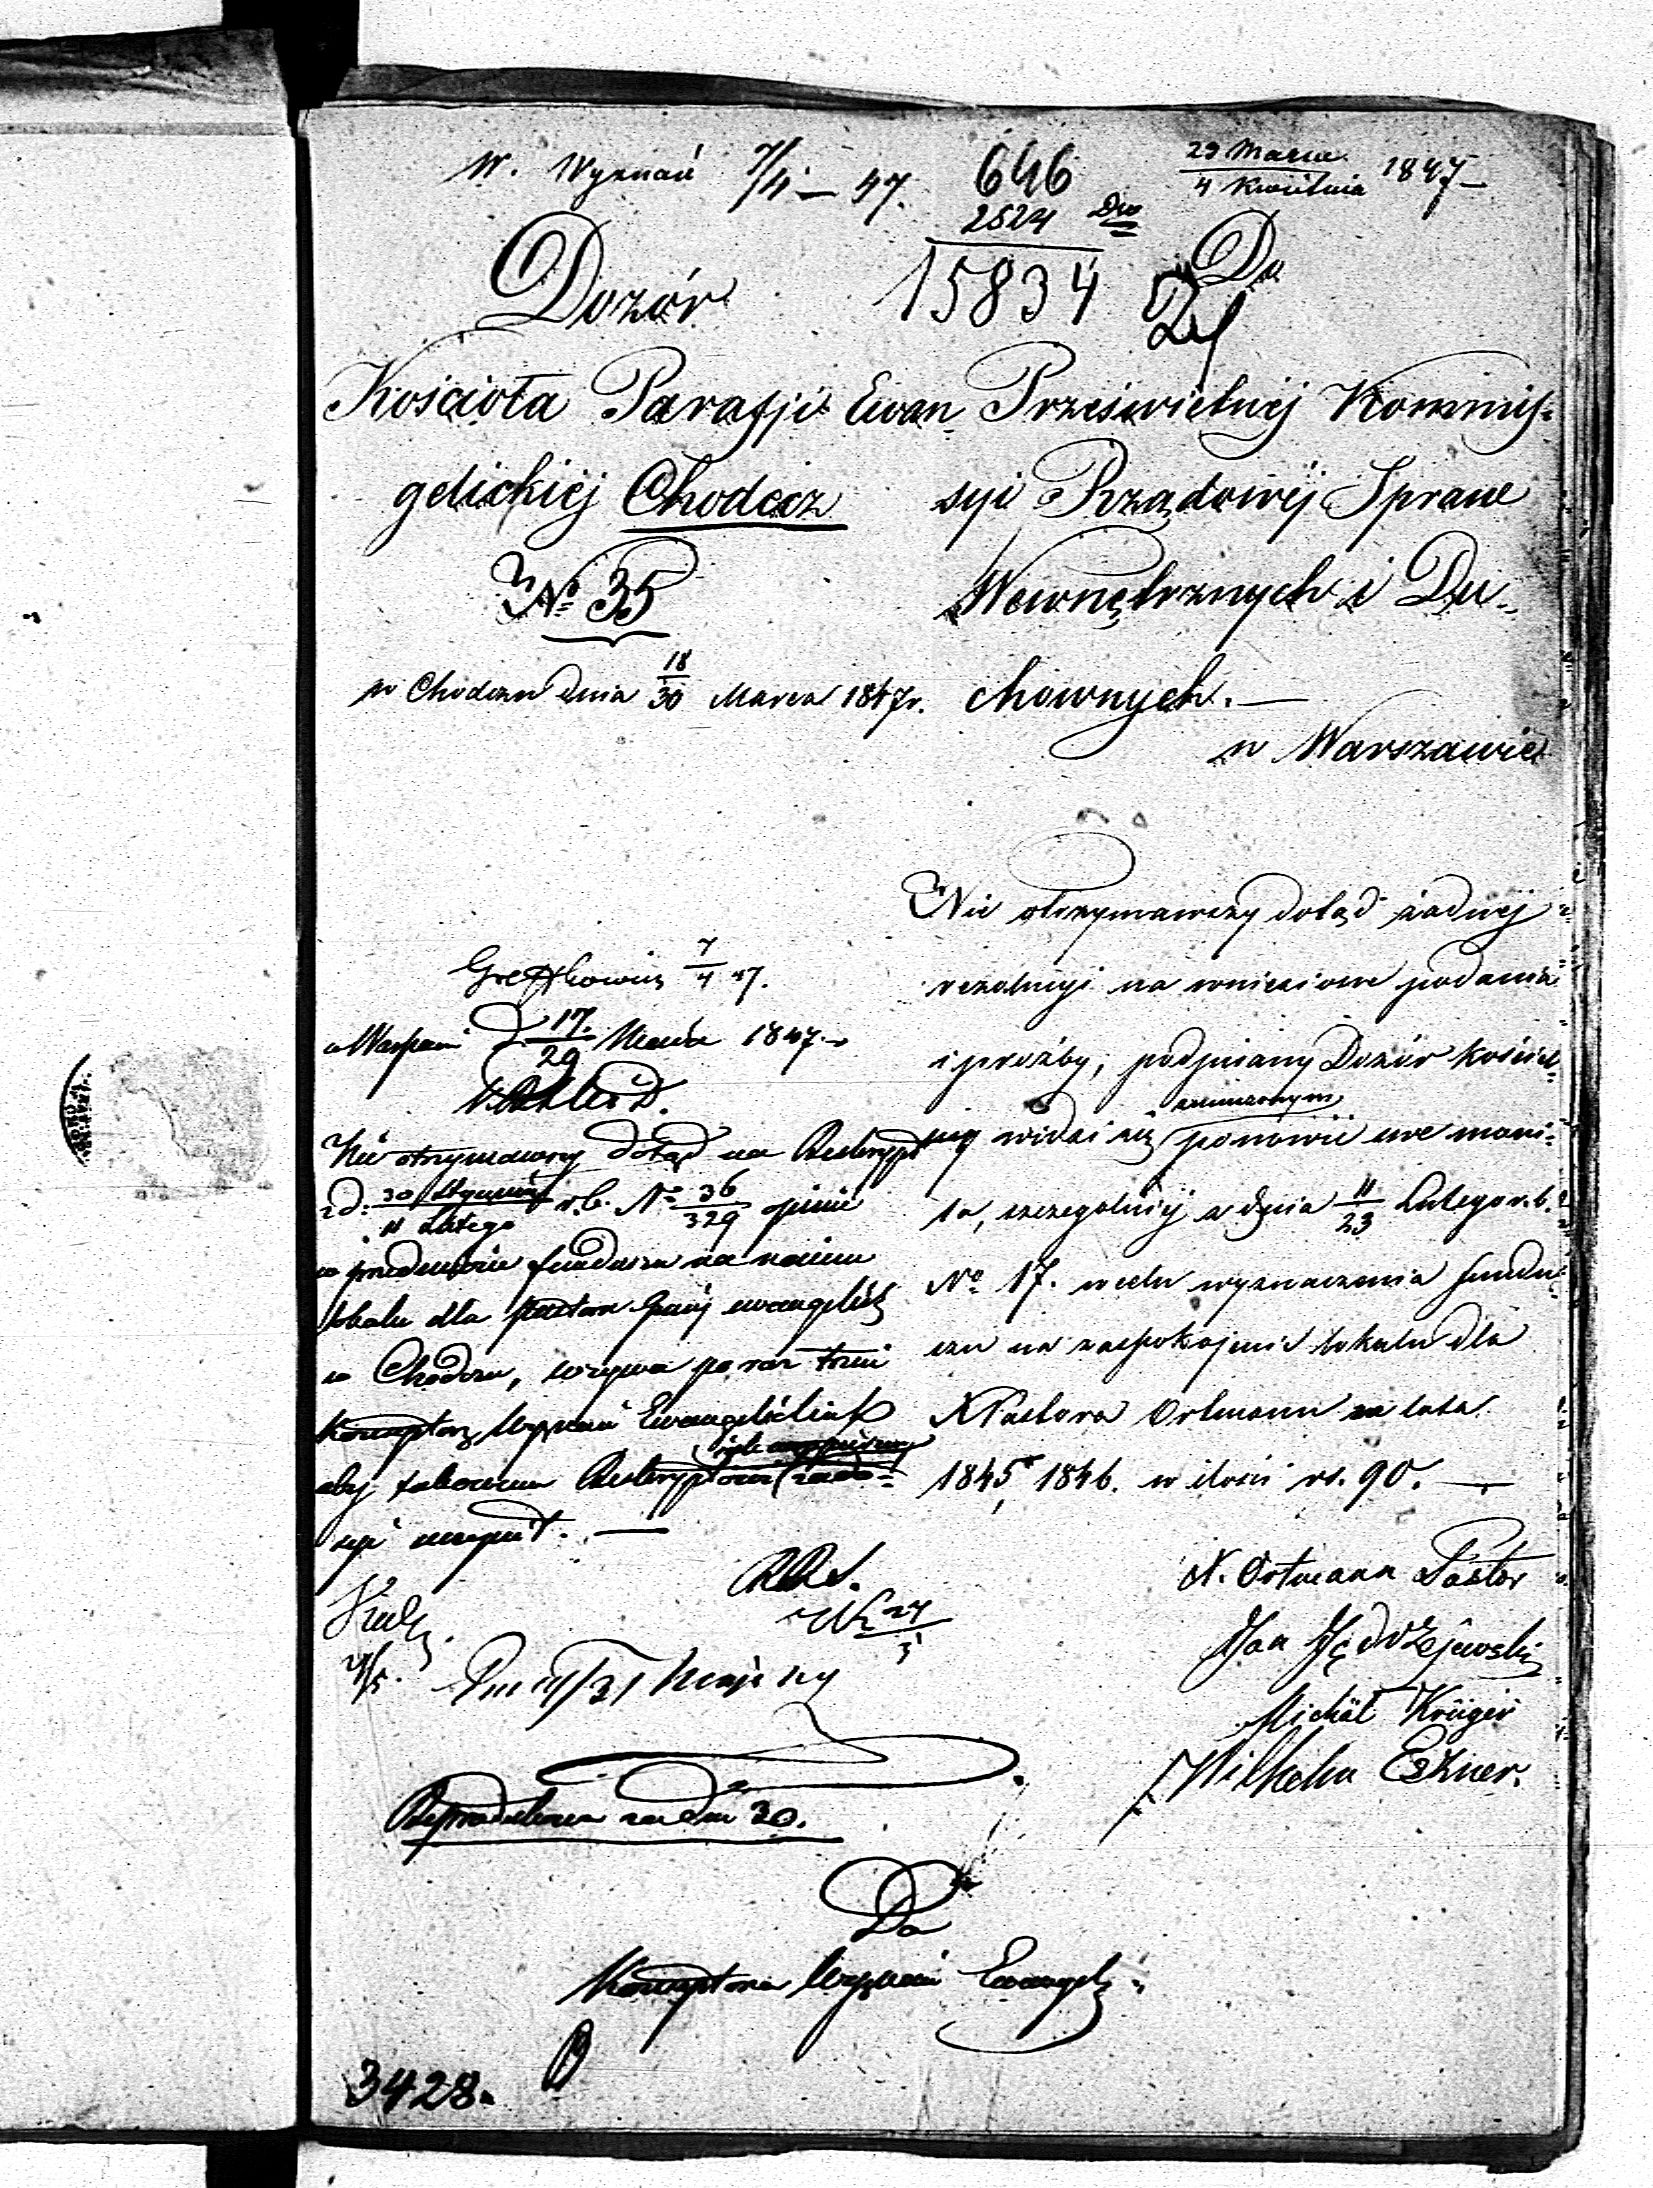 W. Wyznań 7/4 – 47.
646
2524
15834
29 Marca
4 Kwietnia 1847
Dozór
Kościoła Parafji Ewan
gelickiéj Chodecz
№ 35
w Chodczu dnia 18/30 Marca 1847 r.
Do
Prześwietnéj Kommis-
syi Rządowéj Spraw
Wewnętrznych i Du-
chownych. —
w Warszawie
Nie otrzymawszy dotąd żadnéj
rezolucyi na wniesione podania
i proźby, podpisany Dozór Kościel-
ny widzi się ponowić swe moni-
ta, szczególniéj z dnia 11/23 Lutego r. b.
No 17. w celu wyznaczenia fundu
szu na zaspokojenie lokalu dla
X Pastora Ortmann za lata
1845, 1846. w ilości rs. 90. —
N. Ortmann Pastor
Jan Jędrzejewski
Michał Krüger
Wilhelm Exner.
7/4 47.
d 17/29 1847.
Nie otrzymawszy dotąd na Reskrypt
z d: 30 Stycznia/11 Lutego r. b. № 36/329 opinii
w przedmiocie funduszu na najem
lokalu dla Pastora Gminy ewangelick
w Chodczu, wzywa po raz trzeci
Konsystorz Wyznań Ewangelickich
aby takowemu Reskryptowi zado-
syć uczynił. —
Reproducowa za dni 30.
Do
Konsystorza Wyznań Ewangel
3428.